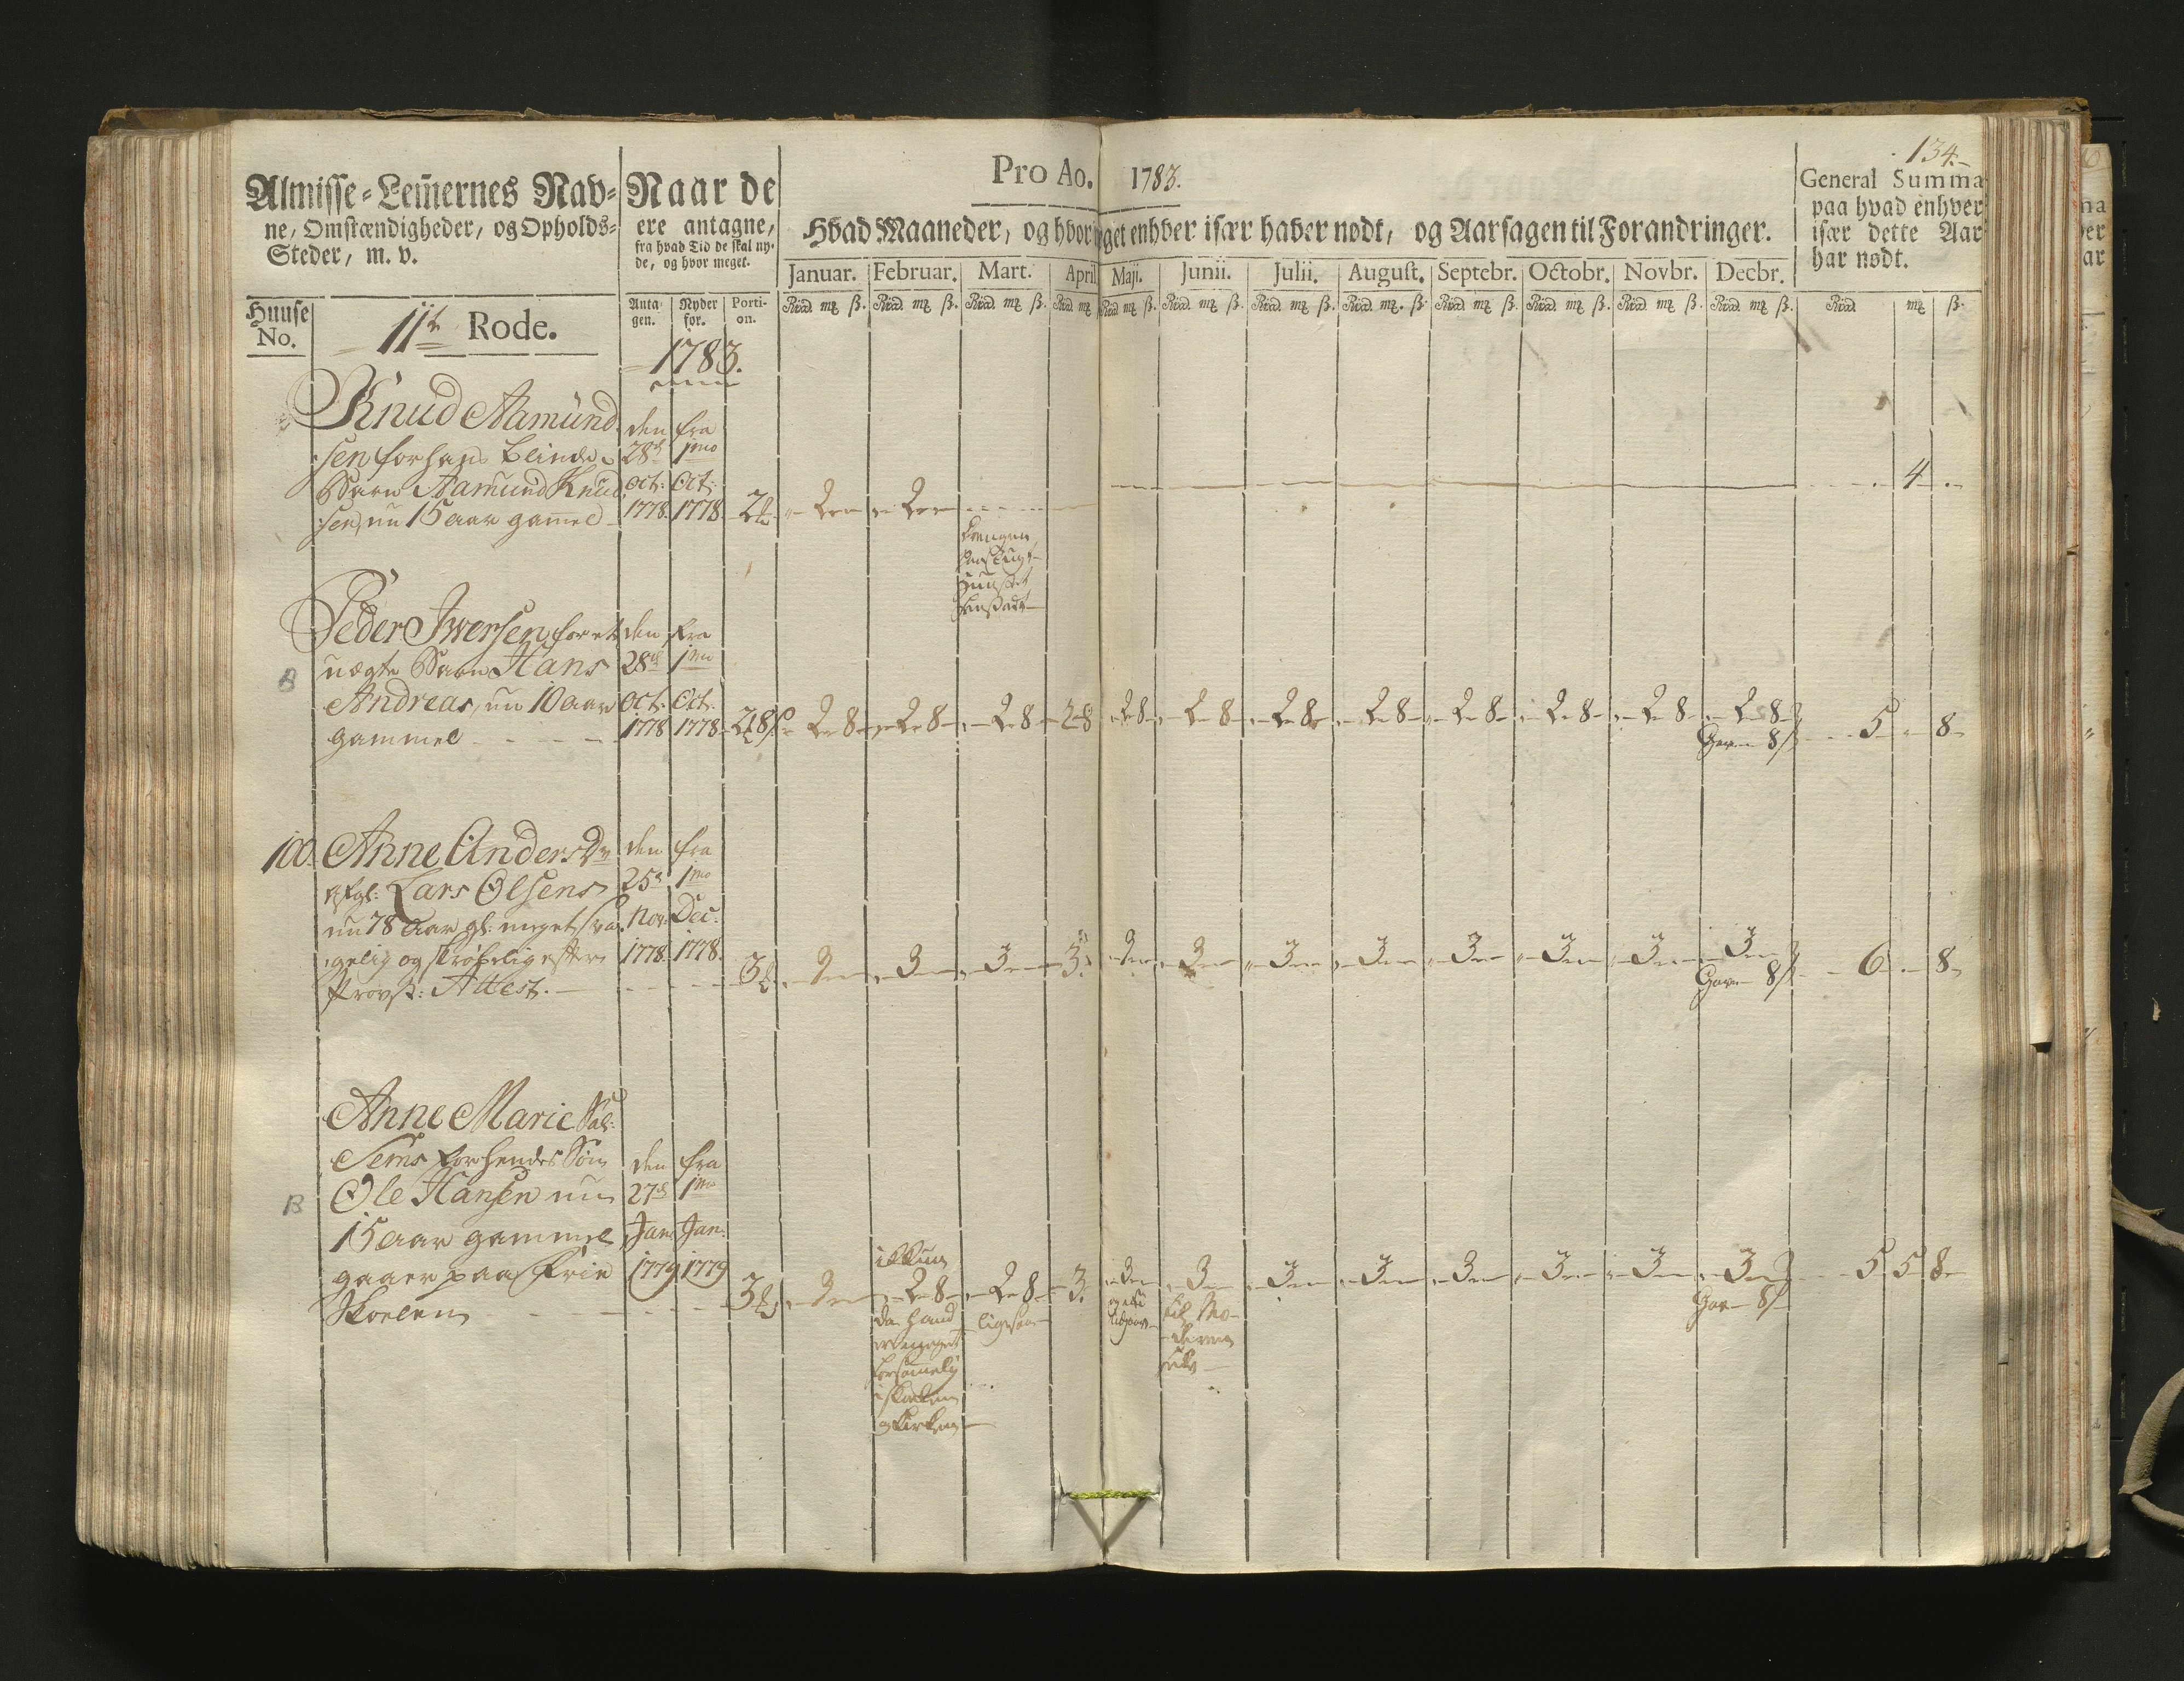 134.
Almisse-Lem̃ernes Nav-
ne, Omstændigheder, og Opholds-
Steder, m. v.
Naar de
ere antagne,
fra hvad Tid de skal ny-
de, og hvor meget.
Pro Ao. 1783.
Hvad Maaneder, og hvor meget enhver især haver nødt, og Aarsagen til Forandringer.
General Summa
paa hvad enhver
især dette Aar
har nødt.
Januar. Februar. Mart. April Maji. Junii. Julii. August. Septebr. Octobr. Novbr. Decbr.
Huuse
No.
11te Rode.
Anta-
gen.
Nyder
for.
Porti-
on.
1783.
Knud Aamund
sen for hans blinde
Barn Aamund Knud
sen, nu 15 aar gamel
den 28de Oct: 1778.
fra 1mo Oct: 1778.
2 2 2 4
Huuset
Peder Iversen for et
uægte Barn Hans
Andreas, nu 10 aar
gammel
B
den 28de Oct: 1778
fra 1mo Oct: 1778
2 8 2 8 2 8 2 8 2 8 2 8 2 8 2 8 2 8 2 8 2 8 2 8 2 8
Gave 8 ß
5 8
100. Anne Andersdr
Lars Olsens
nu 78 Aar gl: meget sva-
gelig og skrøbelig efter
Provst: Attest.
den 25de Nov: 1778.
fra 1mo Dec: 1778.
3 3 3 3 3 3 3 3 3 3 3 3 3
Gave 8 ß
6 8
Anne Marie Sal:
Sems for hendes Søn
Ole Hansen nu
15 aar gammel
gaaer paa Frie
Skolen
B
den 27de Jan: 1779
fra 1mo Jan: 1779
3 3
ikkun
2 8
da hand
er meget
forsømelig
i Skolen
og Kirken
2 8
ligesaa
3 3
3
til Mo-
deren
selv
3 3 3 3 3 3
Gave 8 ß
5 5 8